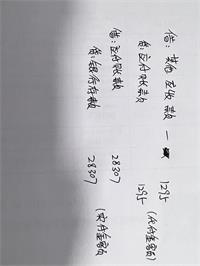 借：其他应收款 — 1295
贷：应付账款 1295 (代付金额)
借：应付账款 28307
借：银行存款 28307 (实付金额)